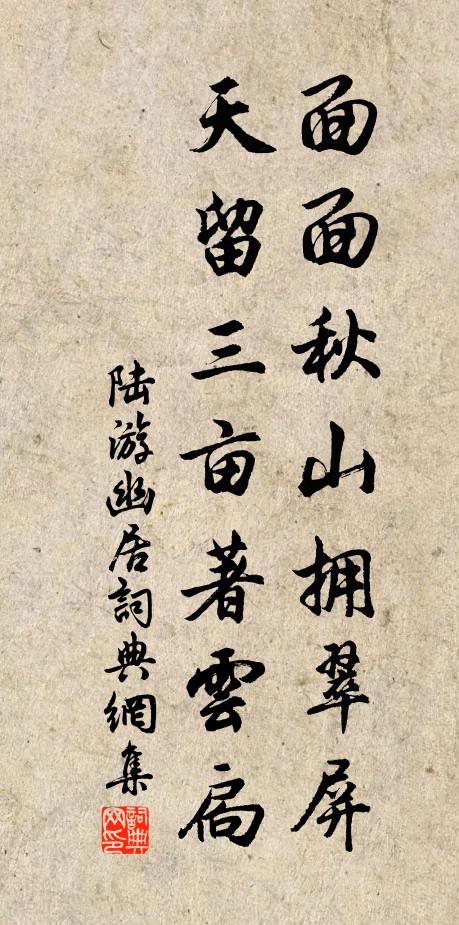 面面秋山拥翠屏
天留三亩著雲扃
陆游幽居詞典網集
詞典网印